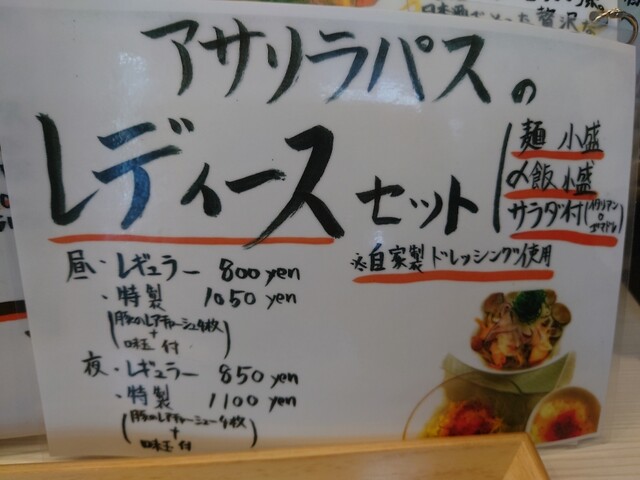 アサリラパスの
レディースセット
麺 小盛
〆飯 小盛
サラダ付
※自家製ドレッシング使用
昼・レギュラー 800yen
・特製 1050yen
(豚のレアチャーシュー4枚
+
味玉 付)
夜・レギュラー 850yen
・特製 1100yen
(豚のレアチャーシュー4枚
+
味玉 付)